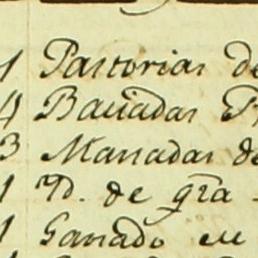 1 Pastorias de
4 Bacιadas
3 Manadas de
1 Yd. de gra
1 Ganado en